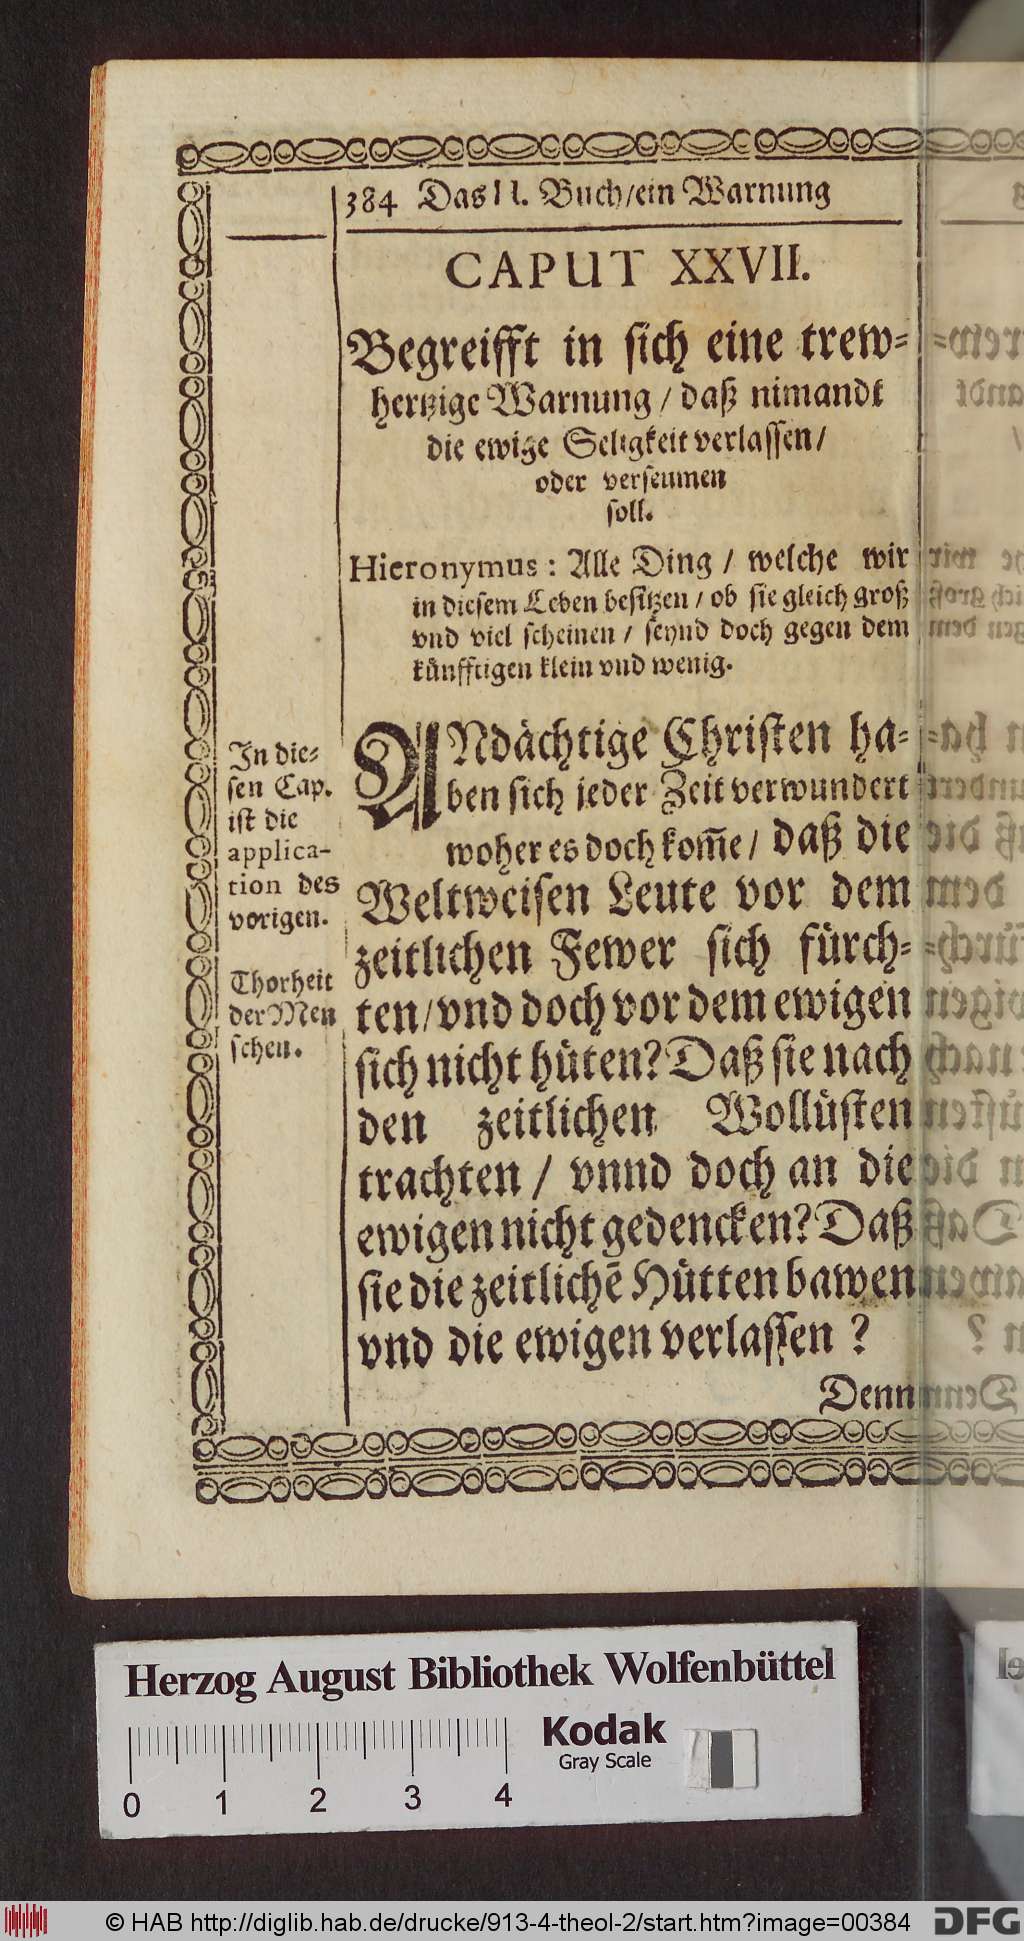 384 Das II. Buch/ein Warnung
CAPUT XXVII.
Begreifft in sich eine trew-
hertzige Warnung / daß nimandt
die ewige Seligkeit verlassen/
oder verseumen
soll.
Hieronymus: Alle Ding / welche wir
in diesem Leben besitzen / ob sie gleich groß
vnd viel scheinen / seynd doch gegen dem
künfftigen klein vnd wenig.
In die-
sen Cap.
ist die
applica-
tion des
vorigen.
Thorheit
der Men
schen.
ANdächtige Christen ha-
ben sich jeder Zeit verwundert
woher es doch kom̃e / daß die
Weltweisen Leute vor dem
zeitlichen Fewer sich fürch-
ten/vnd doch vor dem ewigen
sich nicht hüten? Daß sie nach
den zeitlichen Wollüsten
trachten / vnnd doch an die
ewigen nicht gedencken? Daß
sie die zeitlichẽ Hütten bawen
vnd die ewigen verlassen ?
Denn
Herzog August Bibliothek Wolfenbüttel
Kodak
Gray Scale
0 1 2 3 4
© HAB http://diglib.hab.de/drucke/913-4-theol-2/start.htm?image=00384
DFG